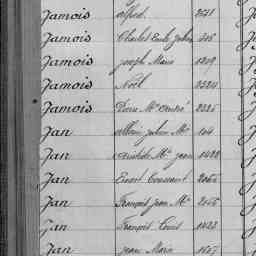 Jamois Alfred. 2571
Jamois Charles Emile Julien 306
Jamois Joseph Marie 1209
Jamois Noël 2324
Jamois Pierre Mie André 2225
Jan Albain Julien Mie 104
Jan Aristide Mie Jean 1422
Jan Ernest Toussaint 2065
Jan François Jean Mie 2045
Jan François Louis 1023
Jan Jean Marie 1657